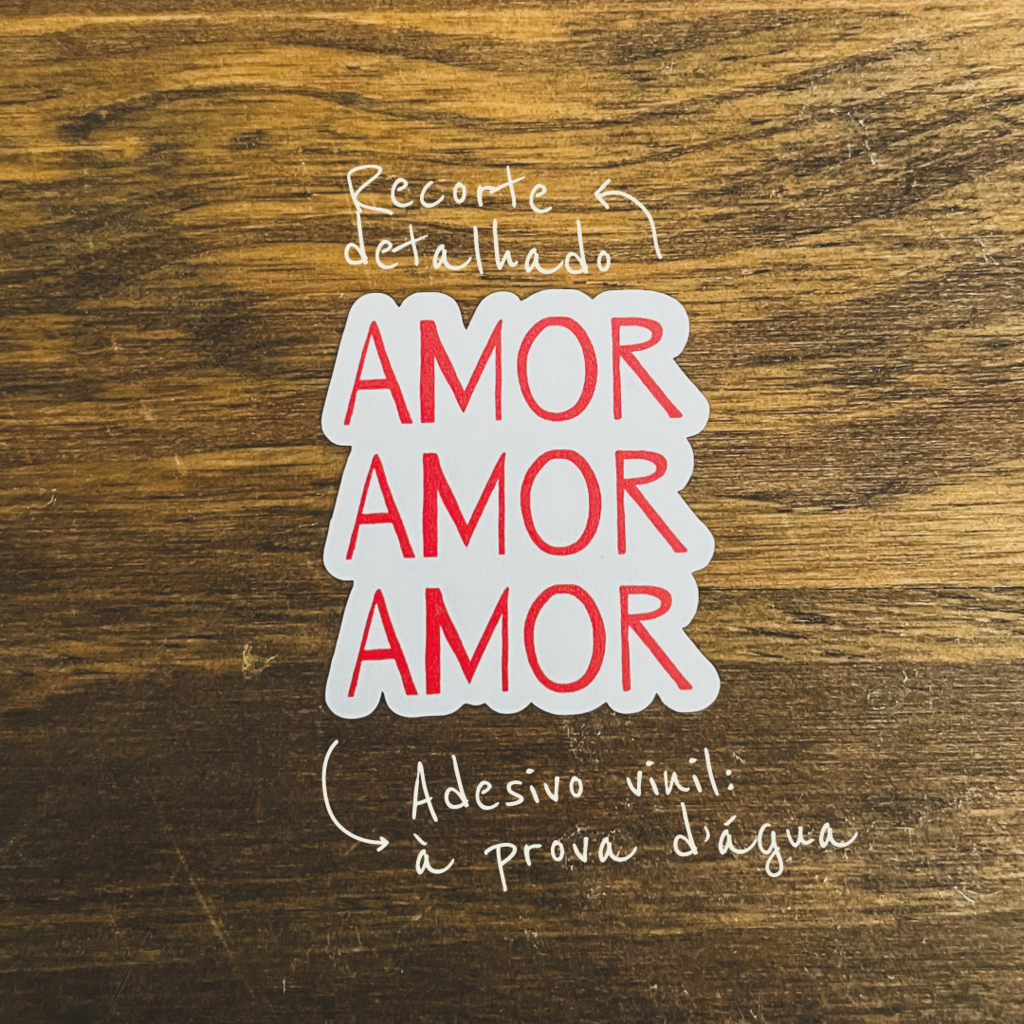 Recorte
detalhado
AMOR
AMOR
AMOR
Adesivo vinil:
à prova d'água